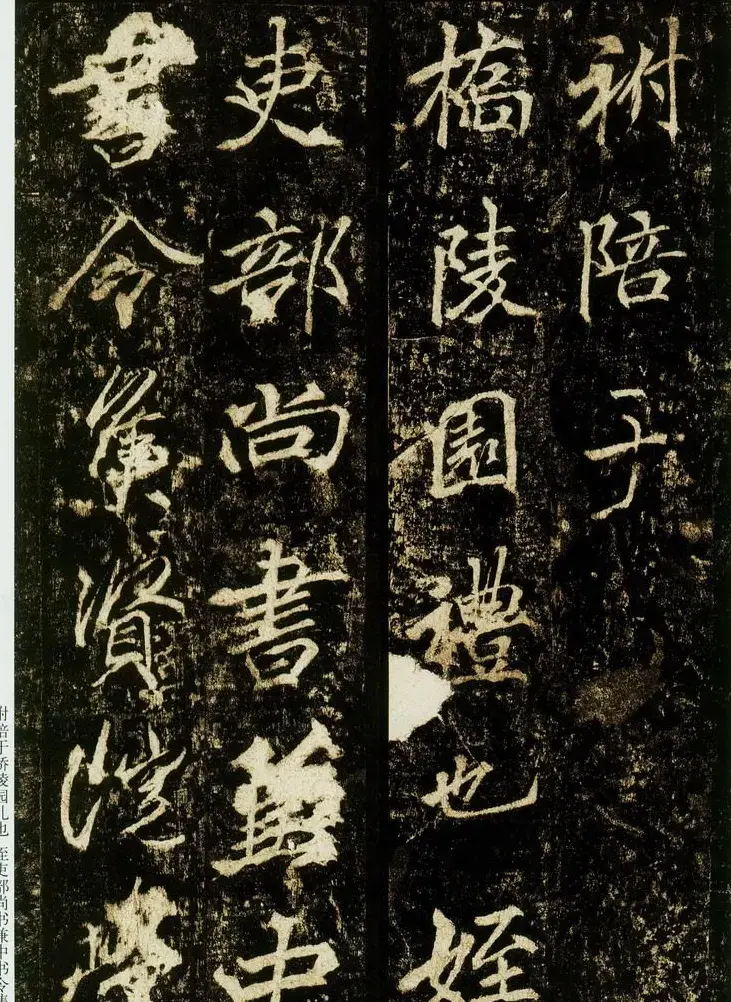 祔陪于
橋陵園禮也姪
吏部尚書兼中
書令集賢院學
陪于桥陵园礼也 侄吏部尚书兼中书令集